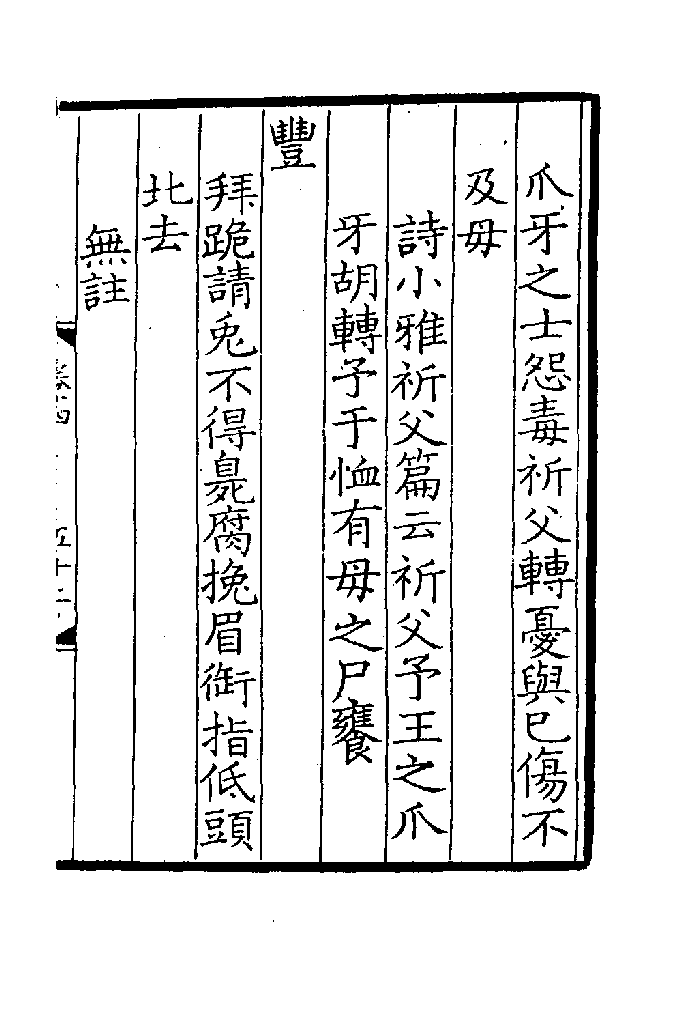 爪牙之士怨毒祈父轉憂與己傷不
及母
詩小雅祈父篇云祈父予王之爪
牙胡轉予于恤有母之尸饔
豐
拜跪請兔不得臰腐挽眉銜指低頭
北去
無註